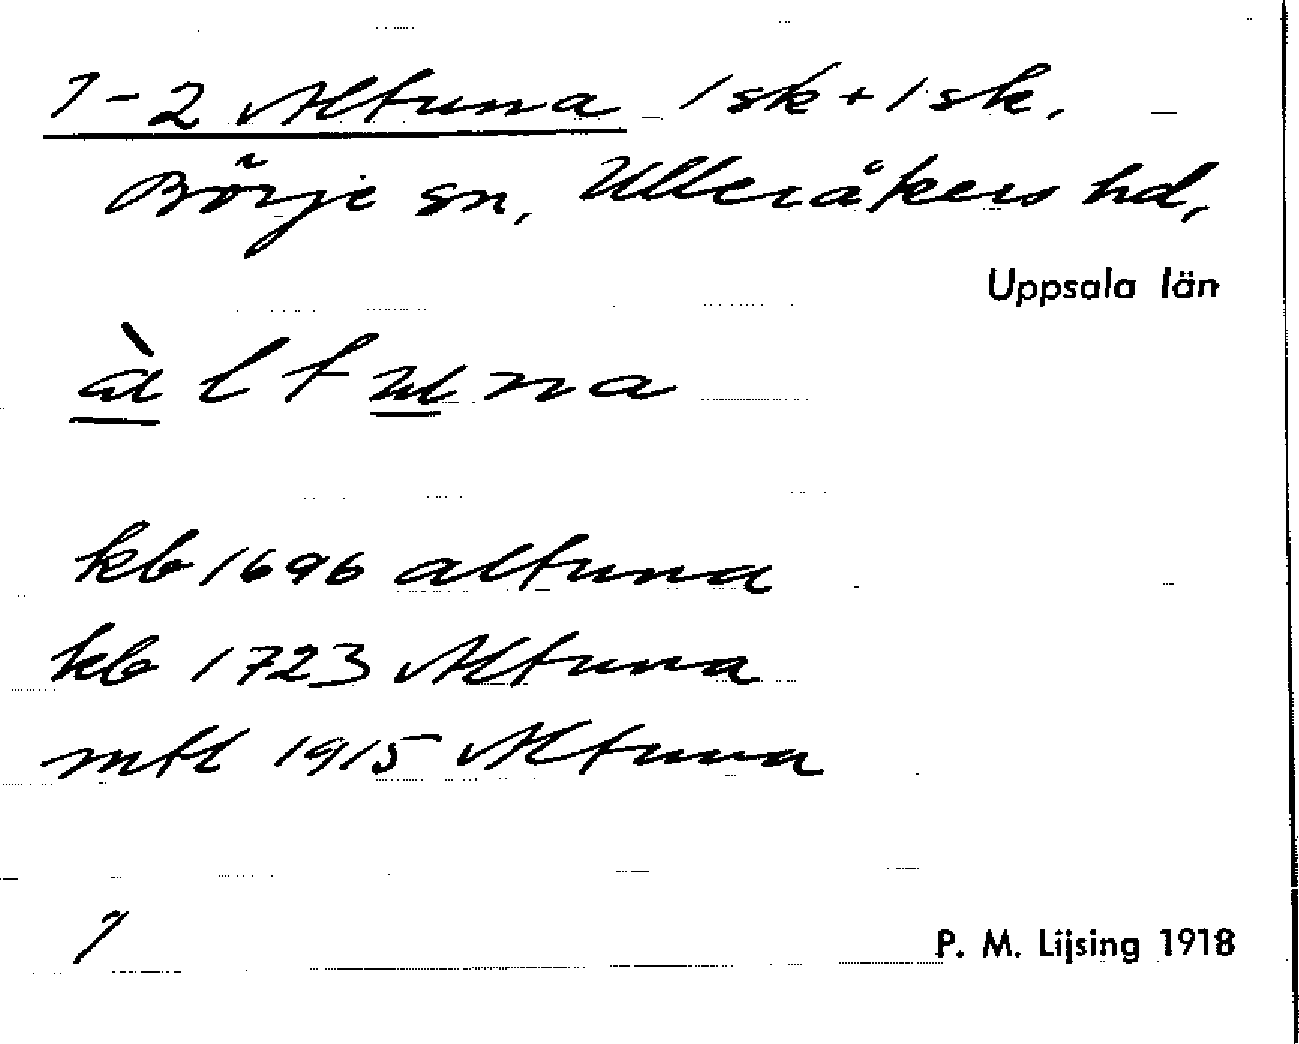 1-2 Altuna 1 sk + 1 sk.
Börje sn, Ulleråkers hd,
Uppsala län
àltuna
kb 1696 altuna
kb 1723 Altuna
mtl 1915 Altuna
1
P. M. Lijsing 1918